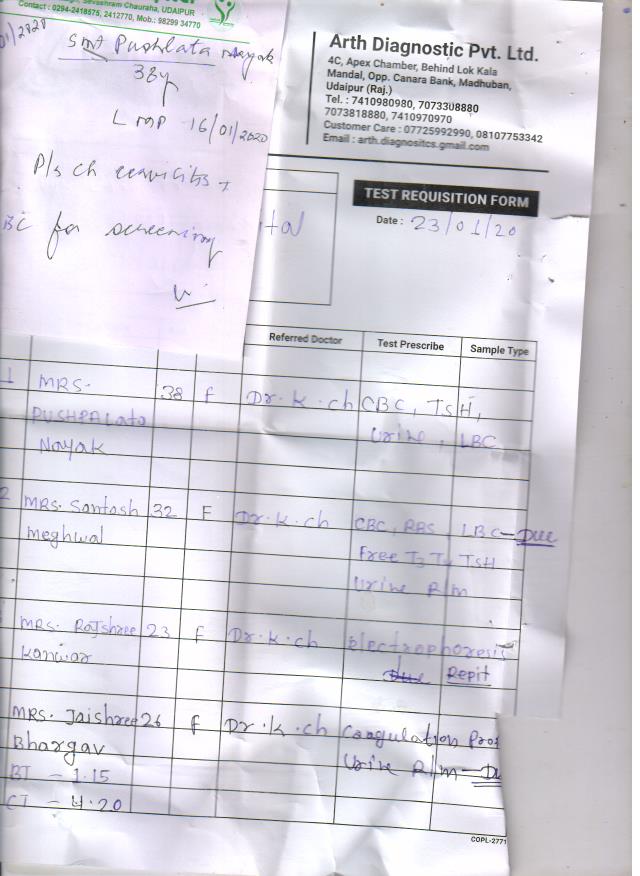 Sevashram Chauraha, UDAIPUR
Contact : 0294-2418575, 2412770, Mob.: 98299 34770
01/2020
Smt Pushlata Nayak
38y
LMP 16/01/2020
P/s cx
BC for screening
Arth Diagnostic Pvt. Ltd.
4C, Apex Chamber, Behind Lok Kala
Mandal, Opp. Canara Bank, Madhuban,
Udaipur (Raj.)
Tel. : 7410980980, 7073308880
7073818880, 7410970970
Customer Care : 07725992990, 08107753342
Email : arth.diagnositcs.gmail.com
TEST REQUISITION FORM
Date : 23/01/20
ital
Referred Doctor Test Prescribe Sample Type
1 MRS. 38 F Dr. K. ch CBC, TSH,
PUSHPALATA Urine, LBC
Nayak
2 MRS. Santosh 32 F Dr. K. ch CBC, RBS, LBC - Due
Meghwal Free T3 T4 TSH
Urine R/m
MRS. Rajshree 23 F Dr. K. ch Electrophoresis
Kanwar Due Repit
MRS. Jaishree 26 F Dr. K. ch Coagulation Prof
Bhargav Urine R/m - Du
BT - 1.15
CT - 4.20
COPL-2771